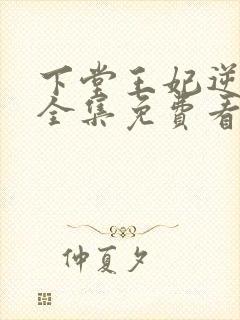 下堂王妃逆
全集免费看
仲夏夕